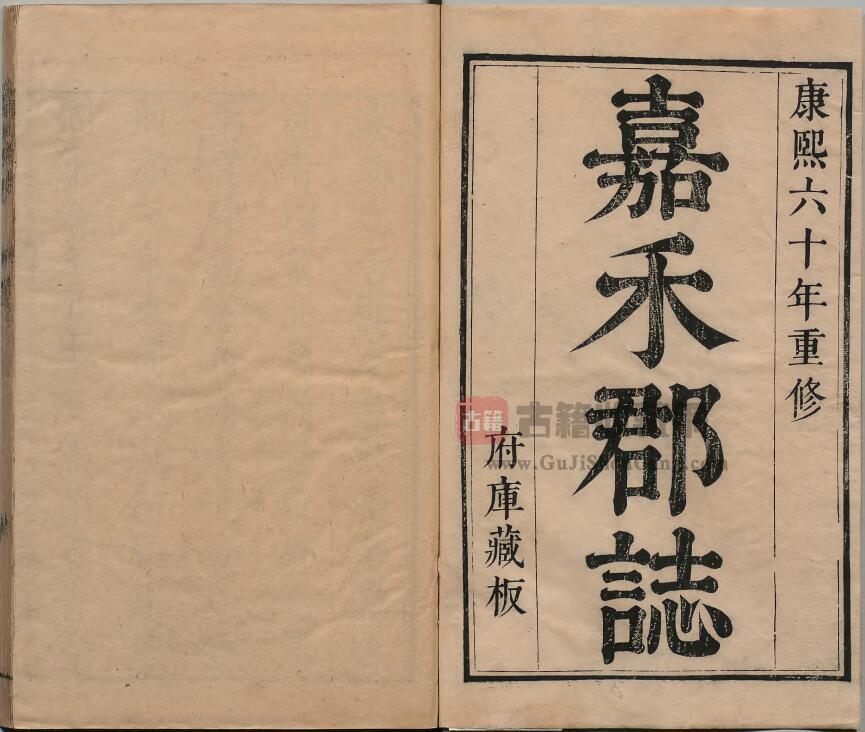 康熙六十年重修
嘉禾郡誌
府庫藏板
古籍
古籍